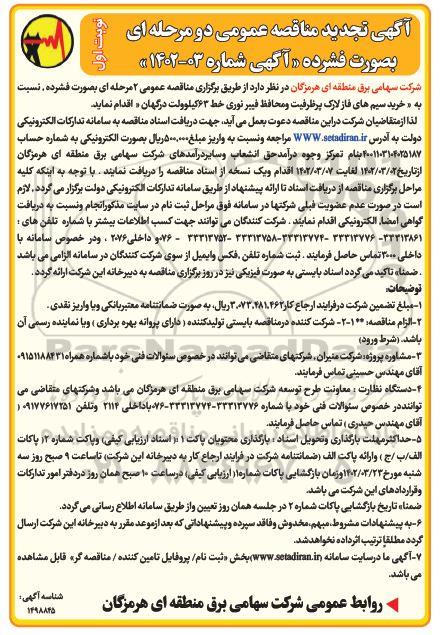 نوبت اول
آگهی تجدید مناقصه عمومی دو مرحله ای
بصورت فشرده « آگهی شماره ۰۳-۱۴۰۲ »
شرکت سهامی برق منطقه ای هرمزگان در نظر دارد از طریق برگزاری مناقصه عمومی ۲مرحله ای بصورت فشرده , نسبت
به « خرید سیم های فاز لارک پرظرفیت ومحافظ فیبر نوری خط ۶۳کیلوولت درگهان » اقدام نماید.
لذا ازمتقاضیان شرکت دراین مناقصه دعوت بعمل می آید، جهت دریافت اسناد مناقصه به سامانه تدارکات الکترونیکی
دولت به آدرس WWW.setadiran.ir مراجعه ونسبت به واریز مبلغ۵۰۰,۰۰۰ریال بصورت الکترونیکی به شماره حساب
بنام تمرکز وجوه درآمدحق انشعاب وسایردرآمدهای شرکت سهامی برق منطقه ای هرمزگان
ازتاریخ ۱۴۰۲/۰۳/۰۲ لغایت ۱۴۰۲/۰۳/۰۷ اقدام ویک نسخه از اسناد مناقصه را دریافت نمایند . با توجه به اینکه کلیه
مراحل برگزاری مناقصه از دریافت اسناد تا ارائه پیشنهاد از طریق سامانه تدارکات الکترونیکی دولت برگزار می گردد , لازم
است در صورت عدم عضویت قبلی شرکتها در سامانه فوق مراحل ثبت نام در سایت مذکورانجام ونسبت به دریافت
گواهی امضا الکترونیکی اقدام نمایند . شرکت کنندگان می توانند جهت کسب اطلاعات بیشتر با شماره تلفن های :
۳۳۳۱۳۸۶۱- ۳۳۳۱۳۷۷۶- ۳۳۳۱۳۷۷۴- ۳۳۳۱۳۷۵۸- ۳۳۳۱۳۷۵۲ - ۰۷۶و داخلی۲۰۷۶ , ودر خصوص سامانه با
داخلی ۳۰۰۰تماس حاصل فرمایند . ثبت شماره تلفن,فکس وایمیل از سوی شرکت کنندگان در سامانه الزامی می باشد
. ضمنا تاکید می گردد اسناد بایستی به صورت فیزیکی نیز در روز برگزاری مناقصه به دبیرخانه این شرکت ارائه گردد .
توضیحات:
۱-مبلغ تضمین شرکت درفرایند ارجاع کار۳,۰۷۳,۴۸۱,۴۶۲ریال، به صورت ضمانتنامه معتبربانکی ویا واریز نقدی .
۲-الزام مناقصه: ** ۱-۲- شرکت کننده درمناقصه بایستی تولیدکننده ( دارای پروانه بهره برداری ) ویا نماینده رسمی آن
باشد. (شرط ورود)
۳-مشاوره پروژه:شرکت منیران , شرکتهای متقاضی می توانند در خصوص سئوالات فنی خود باشماره همراه ۰۹۱۵۱۱۸۸۴۳۱
آقای مهندس حسینی تماس فرمایند.
۴-دستگاه نظارت : معاونت طرح توسعه شرکت سهامی برق منطقه ای هرمزگان می باشد وشرکتهای متقاضی می
توانند در خصوص سئوالات فنی خود با شماره ۳۳۳۱۳۷۷۶-۳۳۳۱۳۷۷۴-۰۷۶یاداخلی ۲۱۱۴ وتلفن ۰۹۱۷۷۶۱۷۲۵۱ (
آقای مهندس حیدری ) تماس حاصل فرمایند.
۵-حداکثرمهلت بارگذاری وتحویل اسناد : بارگذاری محتویان پاکت ۱ =( اسناد ارزیابی کیفی) وپاکت شماره ۲( پاکات
الف/ب / ج) وارائه پاکت الف (ضمانتنامه شرکت در فرایند ارجاع کار به دبیرخانه این شرکت) تاساعت ۹ صبح روز سه
شنبه مورخ۱۴۰۲/۰۳/۲۳وزمان بازگشایی پاکات شماره۱( ارزیابی کیفی) درساعت ۱۰ صبح همان روز دردفتر امور تدارکات
وقراردادهای این شرکت می باشد.
ضمنا» تاریخ بازگشایی پاکات شماره ۲ در جلسه همان روز تعیین واز طریق سامانه اطلاع رسانی می گردد.
۶-به پیشنهادات مشروط،مبهم،مخدوش وفاقد سپرده وپیشنهاداتی که بعد ازموعد مقرر به دبیرخانه این شرکت ارسال
گردد مطلقا ترتیب اثرداده نخواهدشد.
۷-آگهی ما درسایت سامانه (www.setadiran.ir)بخش «ثبت نام/ پروفایل تامین کننده / مناقصه گر» قابل مشاهده
می باشد.
روابط عمومی شرکت سهامی برق منطقه ای هرمزگان
شناسه آگهی :
۱۴۹۸۸۴۵